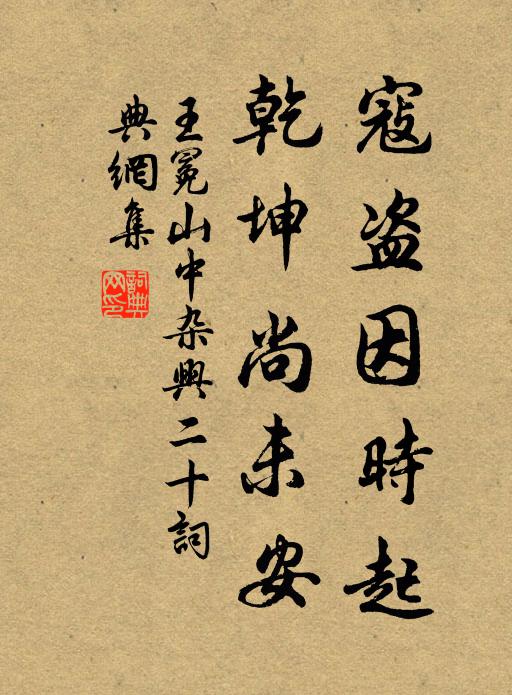 寇盗因時起
乾坤尚未安
王冕山中杂興二十詞
典網集
詞典
网印